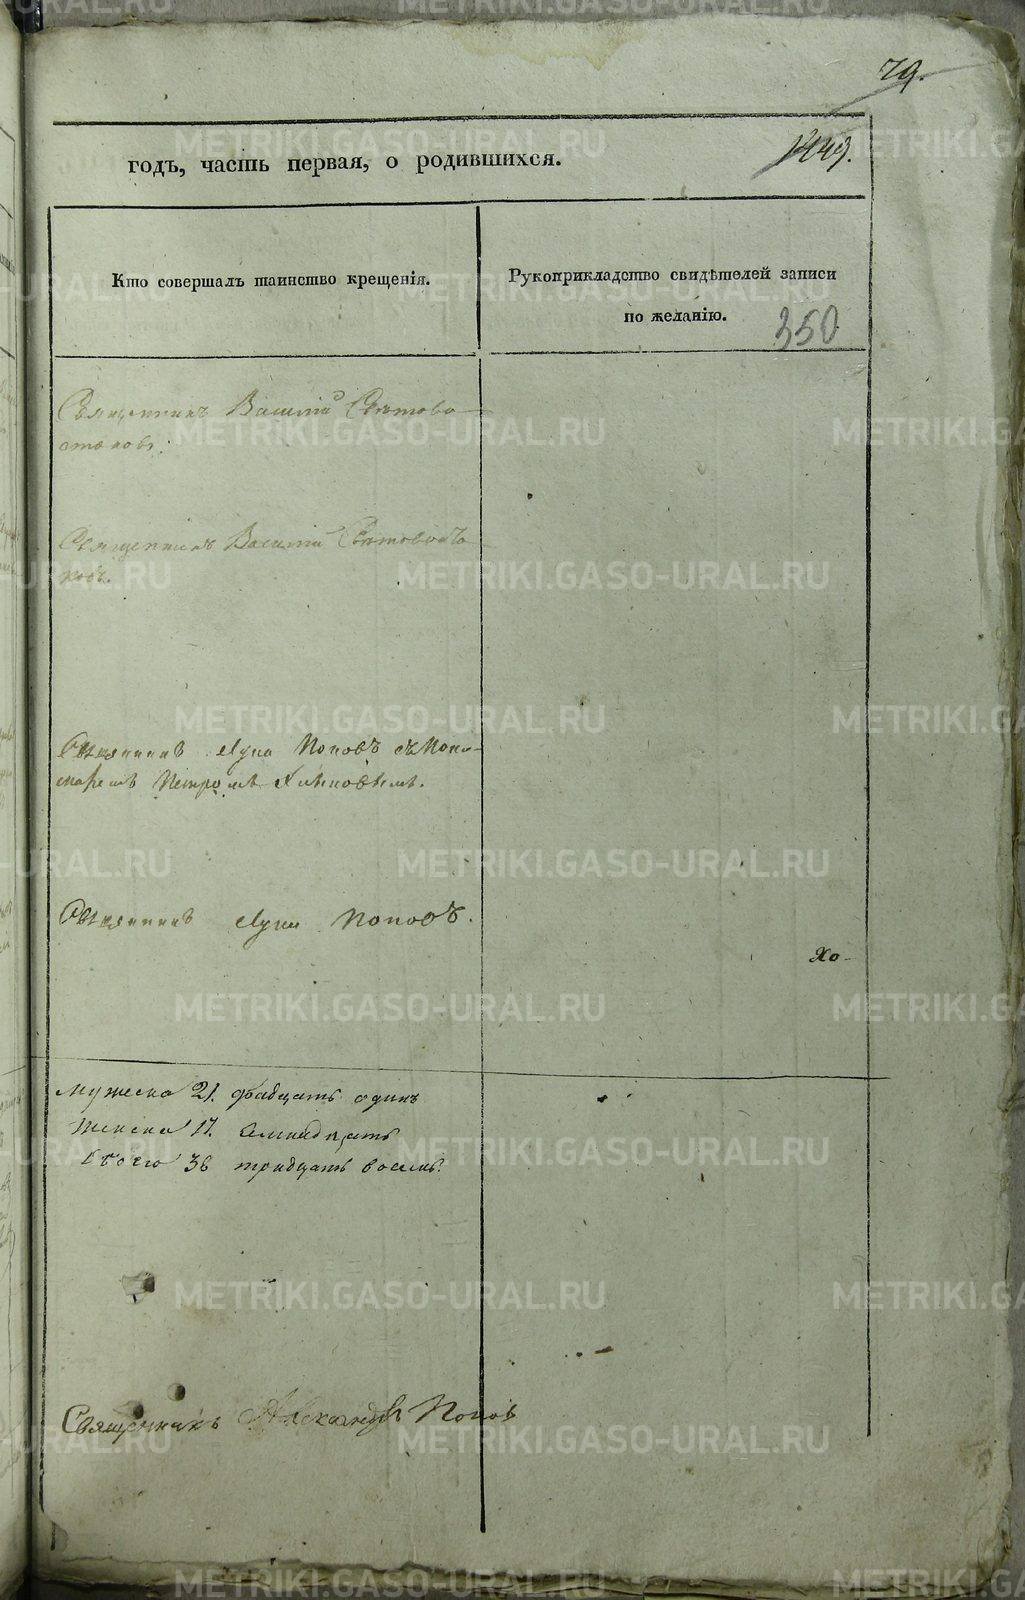 79.
1449.
годъ, часть первая, о родившихся.
Кто совершалъ таинство крещенія.
Рукоприкладство свидѣтелей записи
по желанію.
350
Священникъ Василій Свѣтово-
стоковъ.
Священникъ Василій Свѣтовосто
ковъ.
Священникъ Лука Поповъ съ Поно-
маремъ Петромъ
Священникъ Лука Поповъ.
Хо-
Мужеска 21. двадцать одинъ
Женска 17. семнадцать
Всего 38 тридцать восемь.
Священникъ Александръ Поповъ
METRIKI.GASO-URAL.RU